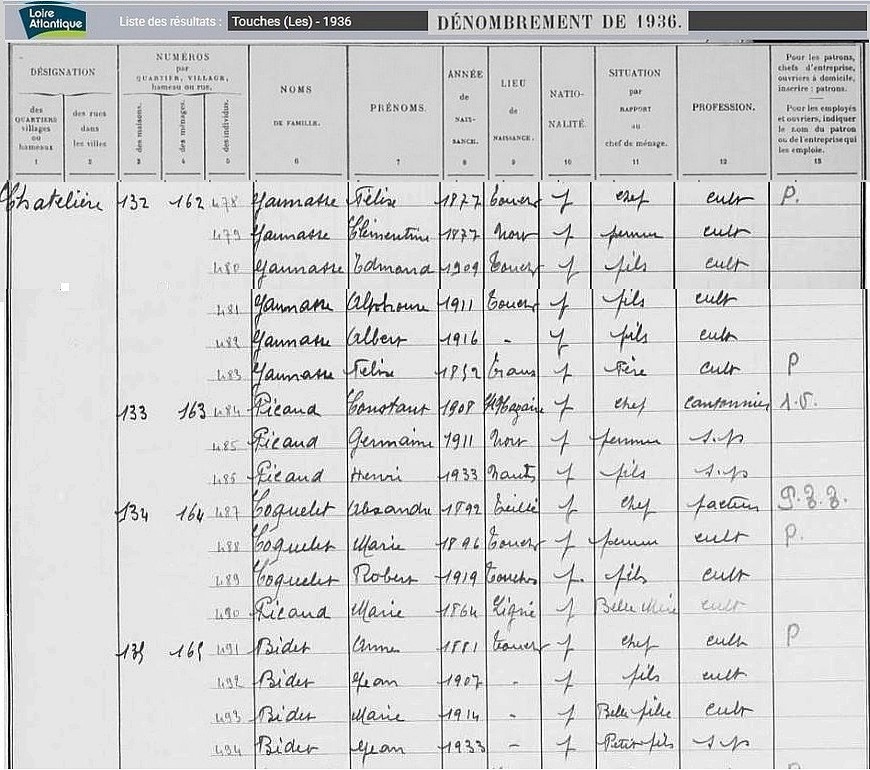 Loire Atlantique
Liste des résultats : Touches (Les) - 1936
DÉNOMBREMENT DE 1936.
DÉSIGNATION
des QUARTIERS villages ou hameaux
1
des rues dans les villes
2
NUMÉROS par QUARTIER, VILLAGE, hameau ou rue.
des maisons.
3
des ménages.
4
des individus.
5
NOMS DE FAMILLE.
6
PRÉNOMS.
7
ANNÉE de NAISSANCE.
8
LIEU de NAISSANCE.
9
NATIONALITÉ.
10
SITUATION par RAPPORT au chef de ménage.
11
PROFESSION.
12
Pour les patrons, chefs d'entreprise, ouvriers à domicile, inscrire : patrons.
Pour les employés et ouvriers, indiquer le nom du patron ou de l'entreprise qui les emploie.
13
Chatelière 132 162 478 Jaunasse Félix 1877 Touches f chef cult P.
479 Jaunasse Clémentine 1877 Nort f femme cult
480 Jaunasse Edmond 1909 Touches f fils cult
481 Jaunasse Alphonse 1911 Touches f fils cult
482 Jaunasse Albert 1916 - f fils cult
483 Jaunasse Félix 1852 f Père cult P
133 163 484 Picaud Constant 1908 St Nazaire f chef cantonnier
485 Picaud Germaine 1911 Nort f femme s.p
486 Picaud Henri 1933 Nantes f fils s.p
134 164 487 Coquelet 1892 Teillé f chef facteur P.
488 Coquelet Marie 1896 Touches f femme cult P.
489 Coquelet Robert 1919 Touches f. fils cult
490 Picaud Marie 1864 Ligné f Belle Mère cult
135 165 491 Bidet Anne 1881 Touches f chef cult P
492 Bidet Jean 1907 - f fils cult
493 Bidet Marie 1914 - f Belle fille cult
494 Bidet Jean 1933 - f Petit fils s.p